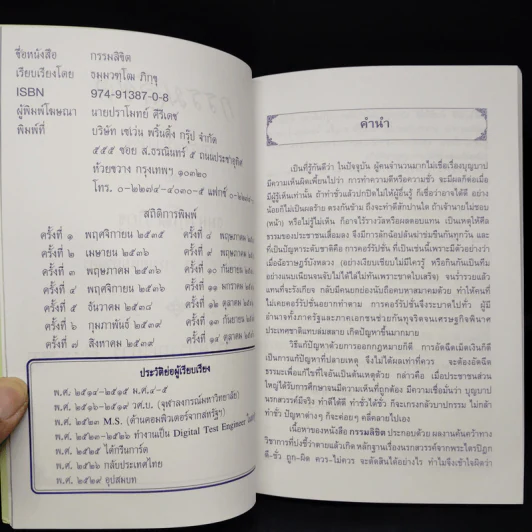 ชื่อหนังสือ กรรมลิขิต
เรียบเรียงโดย ธมฺมวฑฺโฒ ภิกฺขุ
ISBN 974-91387-0-8
ผู้พิมพ์โฆษณา นายปราโมทย์ ศิริเดช
พิมพ์ที่ บริษัท เซเว่น พริ้นติ้ง กรุ๊ป จำกัด
๕๕๕ ซอย ส.ธรณินทร์ ๕ ถนนประชาอุทิศ
ห้วยขวาง กรุงเทพฯ ๑๐๓๒๐
สถิติการพิมพ์
ครั้งที่ ๑ พฤศจิกายน ๒๕๓๕ ครั้งที่ ๘
ครั้งที่ ๒ เมษายน ๒๕๓๖ ครั้งที่ ๙
ครั้งที่ ๓ พฤษภาคม ๒๕๓๖ ครั้งที่ ๑๐ กันยายน
ครั้งที่ ๔ พฤศจิกายน ๒๕๓๖ ครั้งที่ ๑๑ มกราคม
ครั้งที่ ๕ ธันวาคม ๒๕๓๘ ครั้งที่ ๑๒ ตุลาคม
ครั้งที่ ๖ กุมภาพันธ์ ๒๕๓๙ ครั้งที่ ๑๓ กันยายน
ครั้งที่ ๗ สิงหาคม ๒๕๓๙ ครั้งที่ ๑๔ ตุลาคม
ประวัติย่อผู้เรียบเรียง
พ.ศ. ๒๕๑๔-๒๕๑๕ ม.ศ.๔-๕
พ.ศ. ๒๕๑๖-๒๕๑๙ วศ.บ. (จุฬาลงกรณ์มหาวิทยาลัย)
พ.ศ. ๒๕๒๓ M.S. (ด้านคอมพิวเตอร์จากสหรัฐฯ)
พ.ศ. ๒๕๒๓-๒๕๒๖ ทำงานเป็น Digital Test Engineer
พ.ศ. ๒๕๒๕ ได้กรีนการ์ด
พ.ศ. ๒๕๒๖ กลับประเทศไทย
พ.ศ. ๒๕๒๙ อุปสมบท
คำนำ
เป็นที่รู้กันดีว่า ในปัจจุบัน ผู้คนจำนวนมากไม่เชื่อเรื่องบุญบาป
มีความเห็นผิดเพี้ยนไปว่า การทำความดีหรือความชั่ว จะมีผลก็ต่อเมื่อ
มีผู้รู้เห็นเท่านั้น ถ้าทำชั่วแล้วปกปิดไม่ให้ผู้อื่นรู้ ก็เชื่อว่าอาจได้ดี อย่าง
น้อยก็ไม่เป็นผลร้าย ตรงกันข้าม ถึงจะทำดีสักปานใด ถ้าเจ้านายไม่ชอบ
(หน้า) หรือไม่รู้เห็น ก็อาจไร้รางวัลหรือผลตอบแทน เป็นเหตุให้ศีล
ธรรมของประชาชนเสื่อมลง จึงมีการลักน้อยปล้นฆ่าข่มขืนกันทุกวัน และ
ที่เป็นปัญหาระดับชาติคือ การคอร์รัปชั่น ที่เป็นเช่นนี้เพราะมีตัวอย่างว่า
เมื่อมีอำนาจรัฐบังหลวง (อย่างเงียบเชียบไม่มีใครรู้ หรือกินกันเป็นทีม
อย่างแนบเนียนจนจับไม่ได้ไล่ไม่ทันเพราะขาดใบเสร็จ) จนร่ำรวยแล้ว
แทนที่จะรังเกียจ กลับมีคนยกย่องนับถือคบหาสมาคมด้วย ทำให้คนที่
ไม่เคยคอร์รัปชั่นอยากทำตาม การคอร์รัปชั่นจึงระบาดไปทั่ว ผู้มี
อำนาจทั้งภาครัฐและภาคเอกชนช่วยกันทุจริตจนเศรษฐกิจพินาศ
ประเทศชาติแทบล่มสลาย เกิดปัญหาขึ้นมากมาย
วิธีแก้ปัญหาด้วยการออกกฎหมายก็ดี การอัดฉีดเม็ดเงินก็ดี
เป็นการแก้ปัญหาที่ปลายเหตุ จึงไม่ได้ผลเท่าที่ควร จะต้องอัดฉีด
ธรรมะเพื่อแก้ไขที่ใจอันเป็นต้นเหตุด้วย กล่าวคือ เมื่อประชาชนส่วน
ใหญ่ได้รับการศึกษาจนมีความเห็นที่ถูกต้อง มีความเชื่อมั่นว่า บุญบาป
นรกสวรรค์มีจริง ทำดีได้ดี ทำชั่วได้ชั่ว ก็จะเกรงกลัวบาปกรรม ไม่กล้า
ทำชั่ว ปัญหาต่าง ๆ ก็จะค่อยๆ คลี่คลายไปเอง
เนื้อหาของหนังสือ กรรมลิขิต ประกอบด้วย ผลงานค้นคว้าทาง
วิชาการที่บ่งชี้ว่าตายแล้วเกิด หลักฐานเรื่องนรกสวรรค์จากพระไตรปิฎก
ดี-ชั่ว ถูก-ผิด ควร-ไม่ควร จะตัดสินได้อย่างไร ทำไมจึงเข้าใจผิดว่า